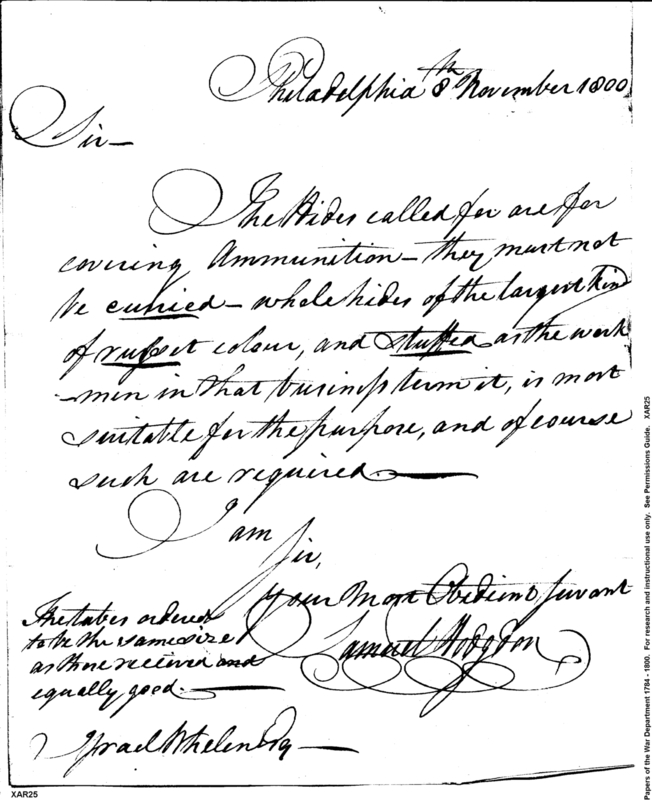 Philadelphia 8th November 1800
Sir —
The Hides called for are for
covering Ammunition — they must not
be curried — whole hides of the largest kind
of russet colour, and stuffed as the work
-men in that business term it, is most
suitable for the purpose, and of course
such are required. —
I am
Sir,
Your Most Obedient Servant
Samuel Hodgdon
The tubes ordered
to be the same size
as those received and
equally good. —
Israel Whelen Esq —
XAR25
Papers of the War Department 1784 - 1800. For research and instructional use only. See Permissions Guide. XAR25